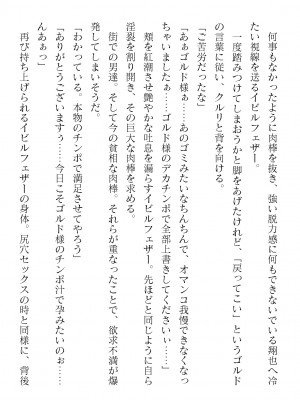 何事もなかったように肉棒を抜き、強い脱力感に何もできないでいる翔也へ冷
たい視線を送るイビルフェザー。
一度踏みつけてしまおうかと脚をあげたけれど、「戻ってこい」というゴルド
の言葉に従い、クルリと背を向ける。
「ご苦労だったな」
「あぁゴルド様ぁ…あのゴミみたいなちんちんで、オマンコ我慢できなくなっ
ちゃいましたぁ……ゴルド様のデカチンポで全部上書きしてくださいぃ…」
頬を紅潮させ艶やかな吐息を漏らすイビルフェザー。先ほどと同じように自ら
淫裂を割り開き、その巨大な肉棒を求める。
街での男達。そして今の貧相な肉棒。それらが重なったことで、欲求不満が爆
発してしまいそうだ。
「わかっている。本物のチンポで満足させてやろう」
「ありがとうございますぅ……今日こそゴルド様のチンポ汁で孕みたいのぉ…
んあぁっ」
再び持ち上げられるイビルフェザーの身体。尻穴セックスの時と同様に、背後